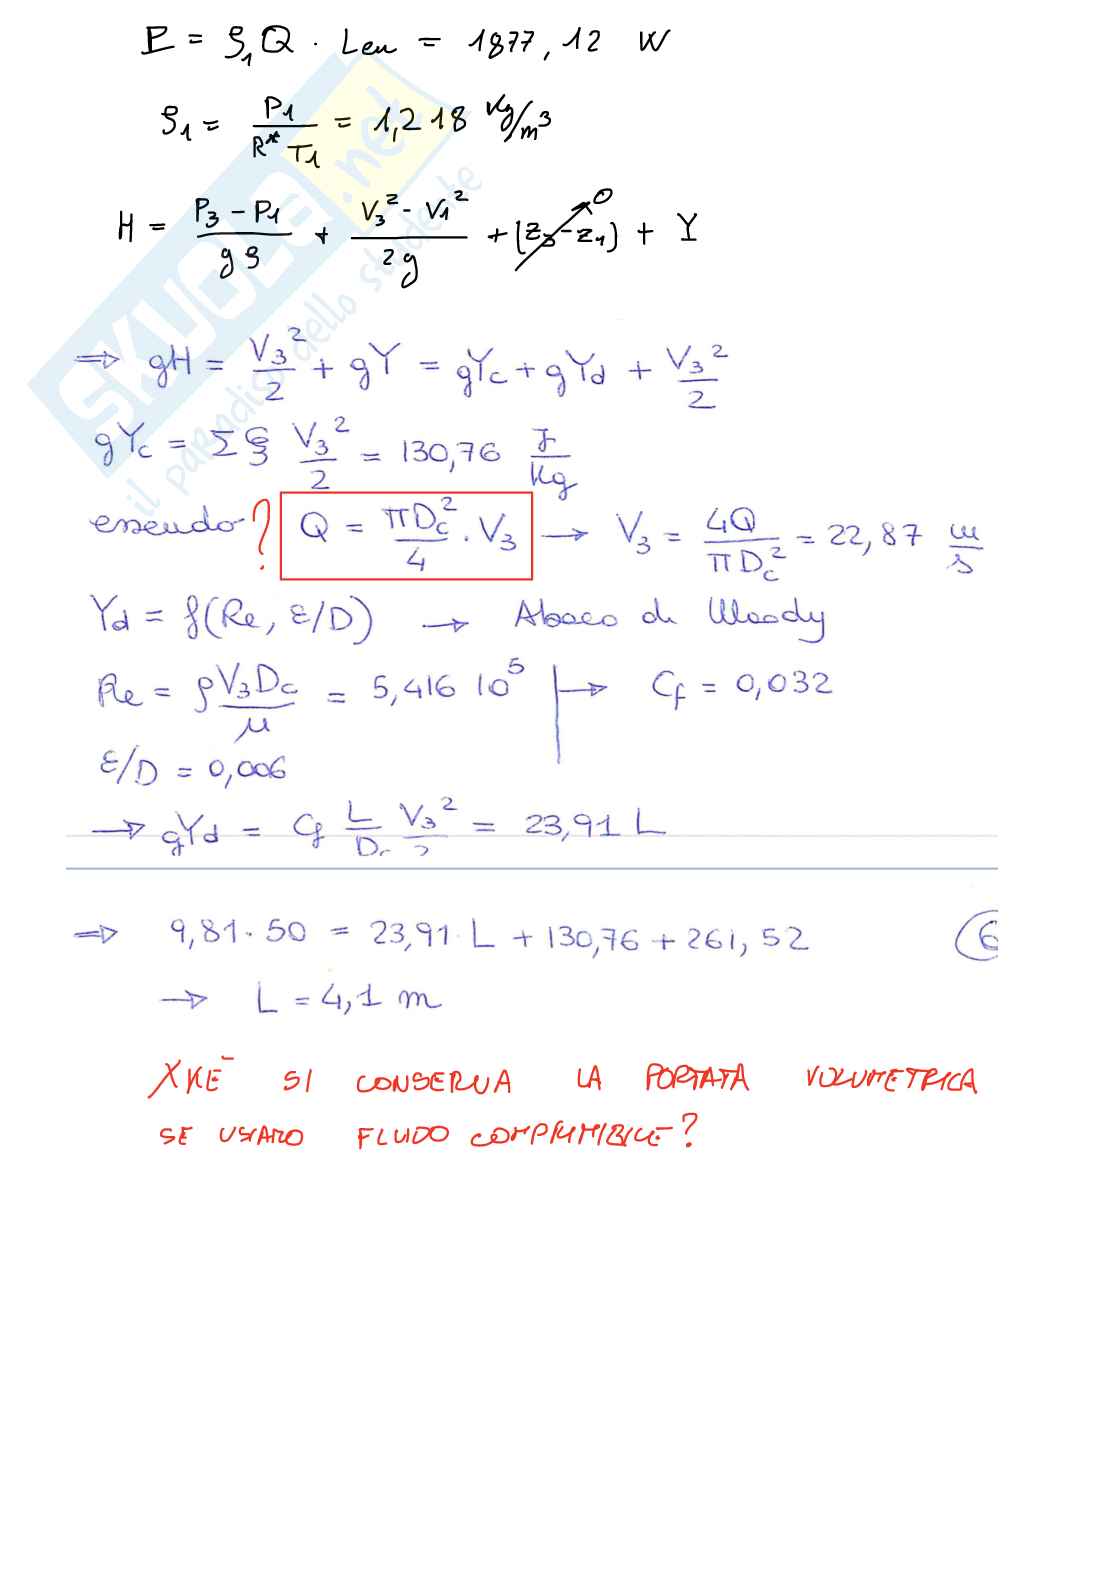 P = ρ₁Q · Leu = 1877,12 W
ρ₁ = P₁ / R* T₁ = 1,218 Kg/m³
H = P₃ - P₁ / gρ + V₃² - V₁² / 2g + (z₃ - z₁) → 0 + Y
⇒ gH = V₃² / 2 + gY = gYc + gYd + V₃² / 2
gYc = Σξ V₃² / 2 = 130,76 J / Kg
essendo ? Q = πDc² / 4 · V₃ → V₃ = 4Q / πDc² = 22,87 m / s
Yd = f(Re, ε/D) → Abaco di Moody
Re = ρV₃Dc / μ = 5,416 10⁵ → Cf = 0,032
ε/D = 0,006
→ gYd = Cf L / Dc V₃² / 2 = 23,91 L
⇒ 9,81 · 50 = 23,91 · L + 130,76 + 261,52 6
→ L = 4,1 m
XKÈ SI CONSERVA LA PORTATA VOLUMETRICA
SE USIAMO FLUIDO COMPRIMIBILE?
SKUOLA.net
il paradiso dello studente